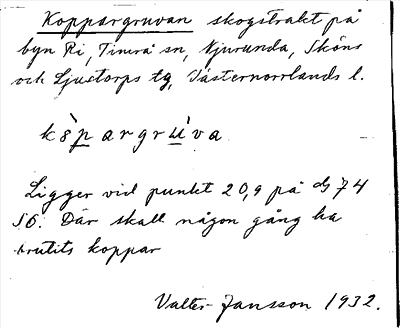 Koppargruvan skogstrakt på
byn Ri, Timrå sn, Njurunda, Sköns
och Ljustorps tg, Västernorrlands l.
kö̀pargrúva
Ligger vid punkt 20,9 på 74
SO. Där skall någon gång ha
brutits koppar
Valter Jansson 1932.